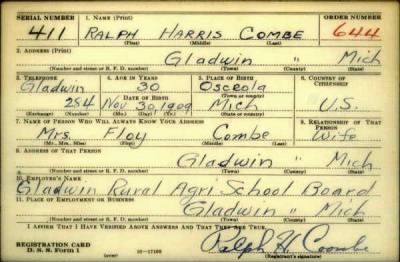 SERIAL NUMBER 1. NAME (Print) ORDER NUMBER
411 RALPH HARRIS COMBE 644
(First) (Middle) (Last)
2. ADDRESS (Print)
Gladwin Mich
(Number and street or R. F. D. number) (Town) (County) (State)
3. TELEPHONE 4. AGE IN YEARS 5. PLACE OF BIRTH 6. COUNTRY OF CITIZENSHIP
Gladwin 30 Osceola
(Town or county)
DATE OF BIRTH
284 Nov 30, 1909 Mich U.S.
(Exchange) (Number) (Mo.) (Day) (Yr.) (State or country)
7. NAME OF PERSON WHO WILL ALWAYS KNOW YOUR ADDRESS 8. RELATIONSHIP OF THAT PERSON
Mrs. Floy Combe Wife
(Mr., Mrs., Miss) (First) (Middle) (Last)
9. ADDRESS OF THAT PERSON
Gladwin " Mich
(Number and street or R. F. D. number) (Town) (County) (State)
10. EMPLOYER'S NAME
Gladwin Rural Agri. School Board
11. PLACE OF EMPLOYMENT OR BUSINESS
Gladwin " Mich
(Number and street or R. F. D. number) (Town) (County) (State)
I AFFIRM THAT I HAVE VERIFIED ABOVE ANSWERS AND THAT THEY ARE TRUE.
REGISTRATION CARD
D. S. S. Form 1
(over) 16—17105
Ralph H. Combe
(Registrant's signature)